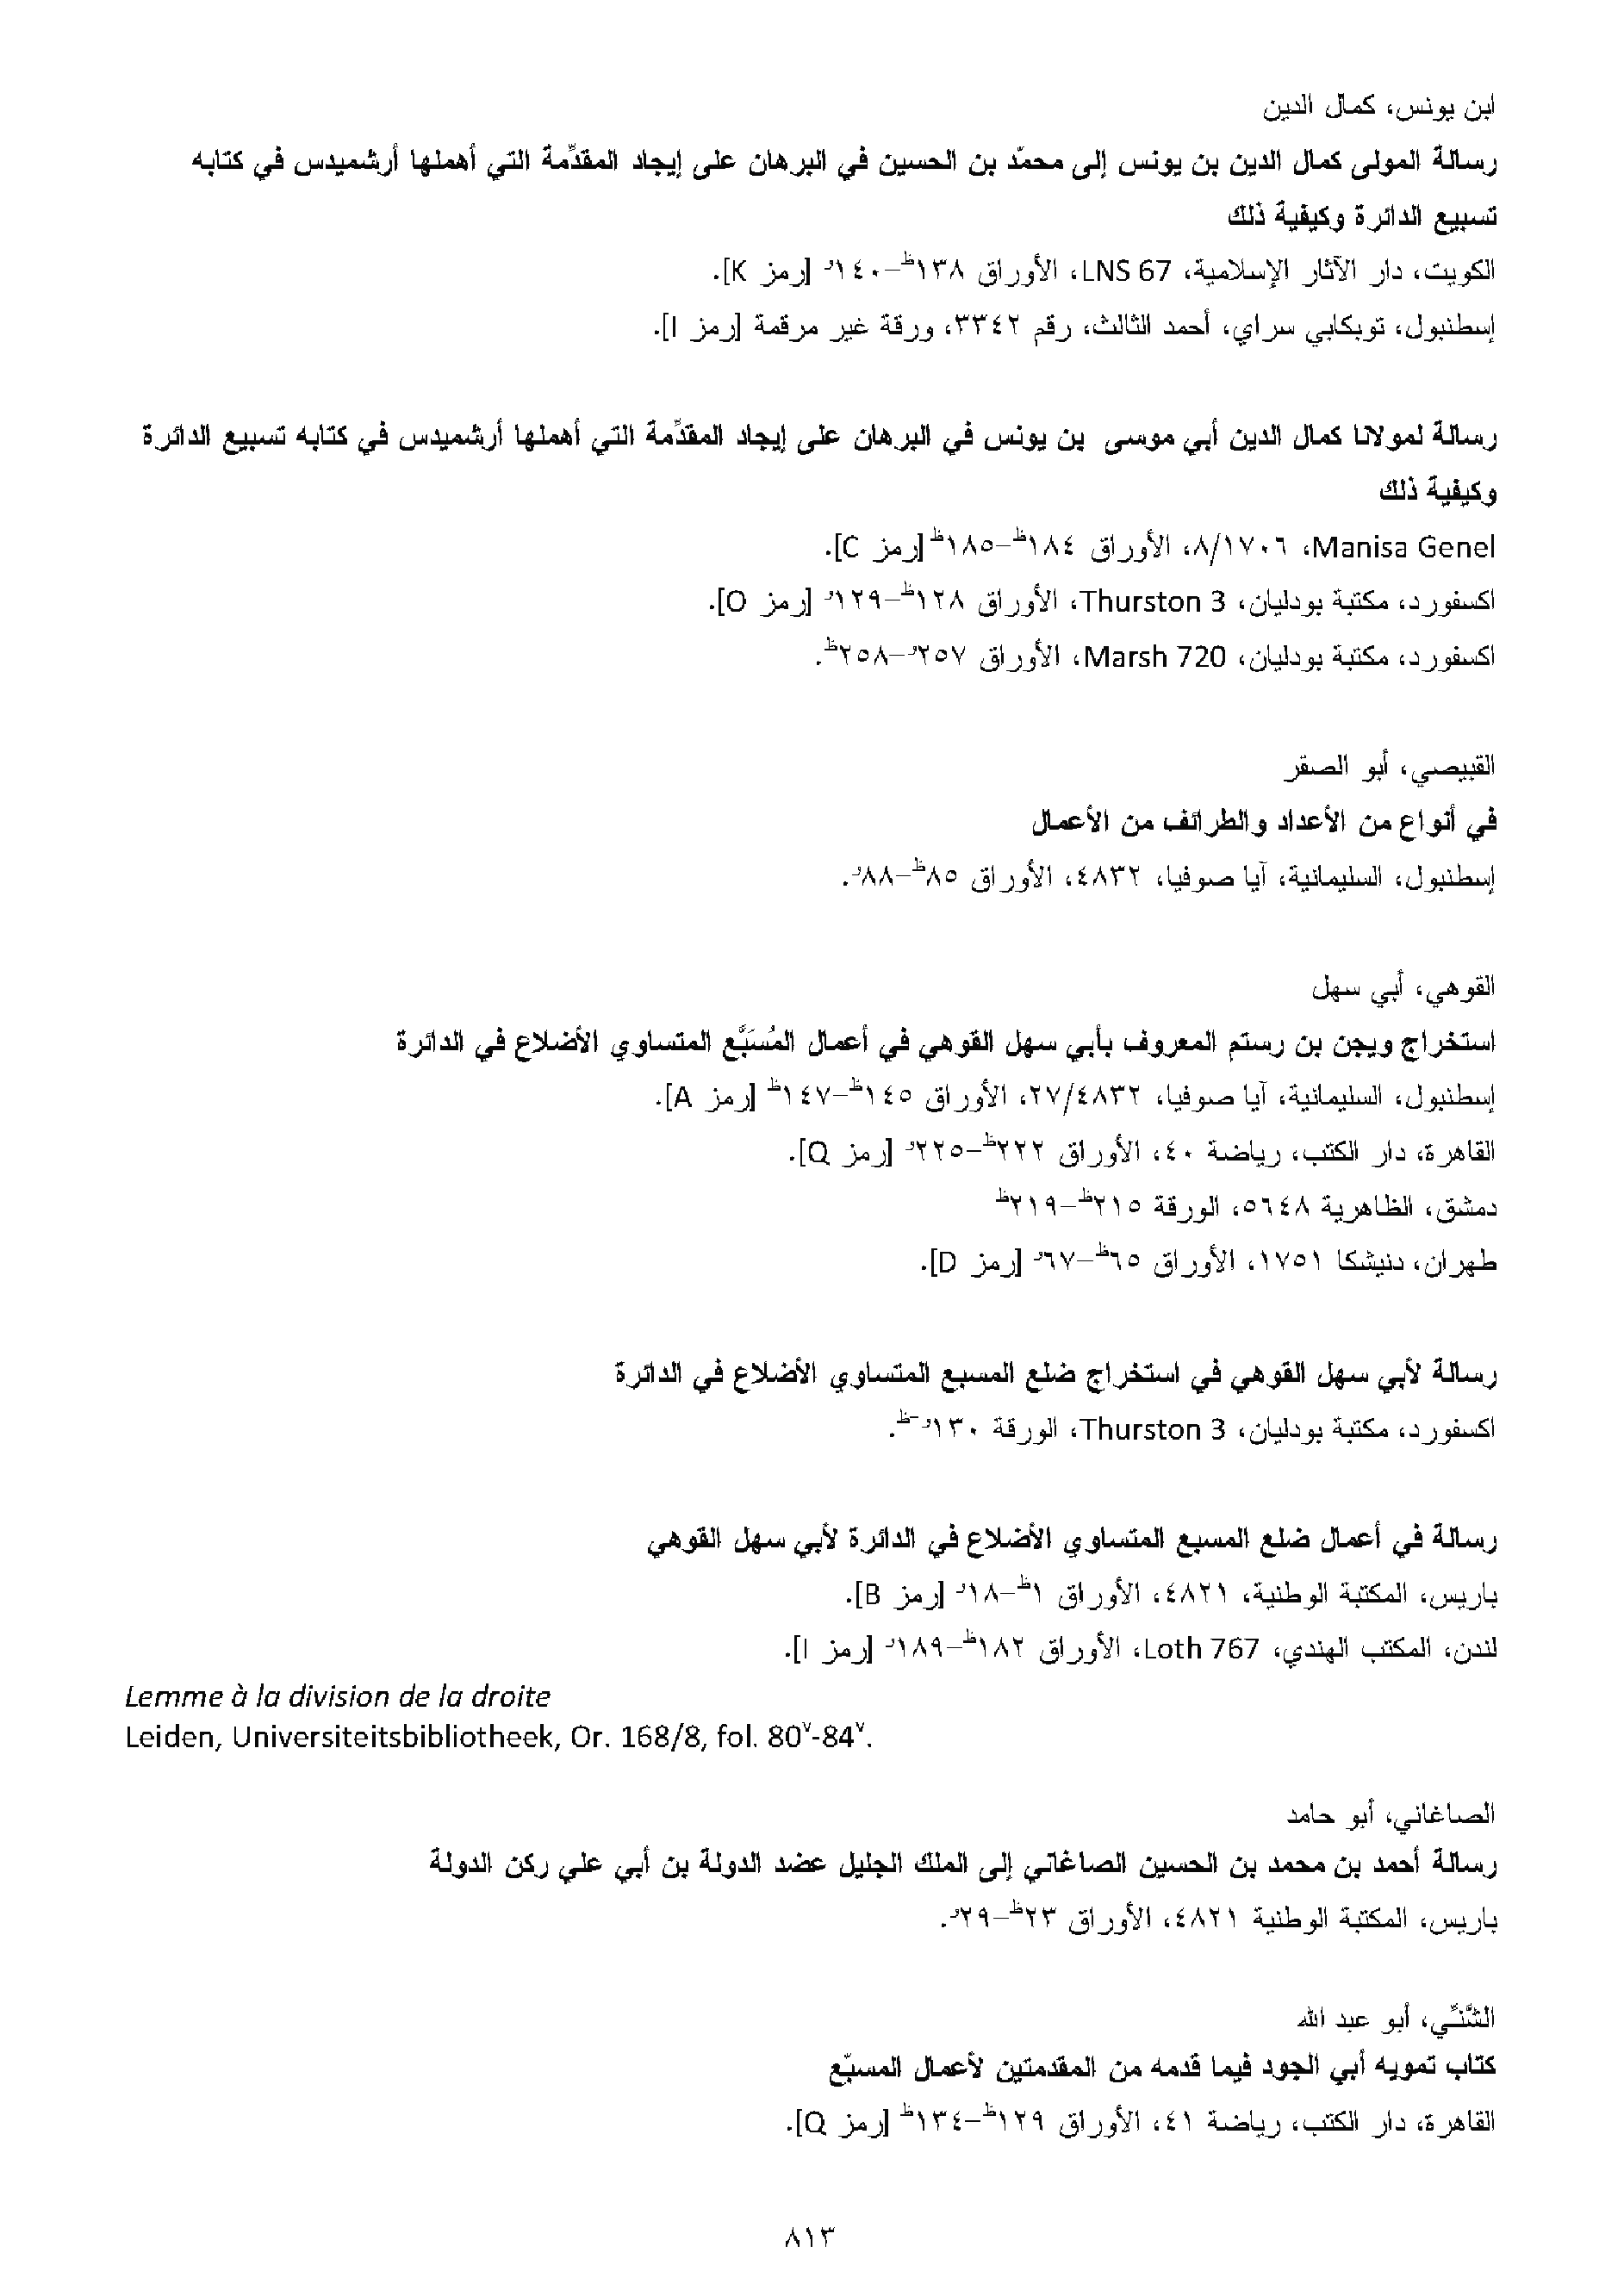 ابن يونس، كمال الدين
رسالة المولى كمال الدين بن يونس إلى محمّد بن الحسين في البرهان على إيجاد المقدِّمة التي أهملها أرشميدس في كتابه
تسبيع الدائرة وكيفية ذلك
الكويت، دار الآثار الإسلامية، LNS 67، الأوراق ١٣٨ظ–١٤٠و [رمز K].
إسطنبول، توبكابي سراي، أحمد الثالث، رقم ٣٣٤٢، ورقة غير مرقمة [رمز I].
رسالة لمولانا كمال الدين أبي موسى بن يونس في البرهان على إيجاد المقدِّمة التي أهملها أرشميدس في كتابه تسبيع الدائرة
وكيفية ذلك
Manisa Genel، ٨/١٧٠٦، الأوراق ١٨٤ظ–١٨٥ظ [رمز C].
اكسفورد، مكتبة بودليان، Thurston 3، الأوراق ١٢٨ظ–١٢٩و [رمز O].
اكسفورد، مكتبة بودليان، Marsh 720، الأوراق ٢٥٧و–٢٥٨ظ.
القبيصي، أبو الصقر
في أنواع من الأعداد والطرائف من الأعمال
إسطنبول، السليمانية، آيا صوفيا، ٤٨٣٢، الأوراق ٨٥ظ–٨٨و.
القوهي، أبي سهل
استخراج ويجن بن رستم المعروف بأبي سهل القوهي في أعمال المُسَبَّع المتساوي الأضلاع في الدائرة
إسطنبول، السليمانية، آيا صوفيا، ٢٧/٤٨٣٢، الأوراق ١٤٥ظ–١٤٧ظ [رمز A].
القاهرة، دار الكتب، رياضة ٤٠، الأوراق ٢٢٢ظ–٢٢٥و [رمز Q].
دمشق، الظاهرية ٥٦٤٨، الورقة ٢١٥ظ–٢١٩ظ
طهران، دنيشكا ١٧٥١، الأوراق ٦٥ظ–٦٧و [رمز D].
رسالة لأبي سهل القوهي في استخراج ضلع المسبع المتساوي الأضلاع في الدائرة
اكسفورد، مكتبة بودليان، Thurston 3، الورقة ١٣٠و–ظ.
رسالة في أعمال ضلع المسبع المتساوي الأضلاع في الدائرة لأبي سهل القوهي
باريس، المكتبة الوطنية، ٤٨٢١، الأوراق ١ظ–١٨و [رمز B].
لندن، المكتب الهندي، Loth 767، الأوراق ١٨٢ظ–١٨٩و [رمز I].
Lemme à la division de la droite
Leiden, Universiteitsbibliotheek, Or. 168/8, fol. 80v-84v.
الصاغاني، أبو حامد
رسالة أحمد بن محمد بن الحسين الصاغاني إلى الملك الجليل عضد الدولة بن أبي علي ركن الدولة
باريس، المكتبة الوطنية ٤٨٢١، الأوراق ٢٣ظ–٢٩و.
الشَّنّي، أبو عبد الله
كتاب تمويه أبي الجود فيما قدمه من المقدمتين لأعمال المسبّع
القاهرة، دار الكتب، رياضة ٤١، الأوراق ١٢٩ظ–١٣٤ظ [رمز Q].
٨١٣